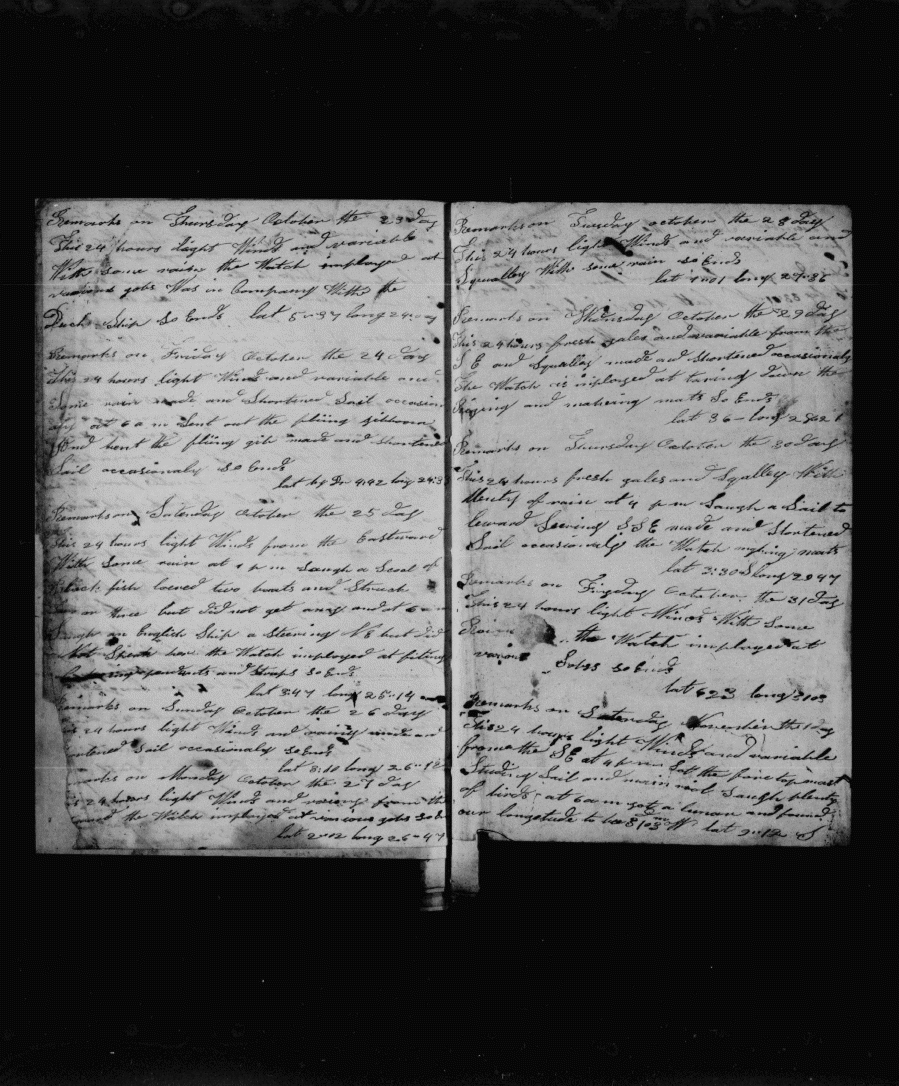 Remarks on Thursday October the 23 day
This 24 hours light Winds and variable
With some rain the Watch imployed at
various jobs Was in Company With the
Duch Ship So Ends lat 5=37 long 24=
Remarks on Friday October the 24 day
This 24 hours light Winds and variable and
Some rain made and Shortened Sail occasion
aly at 6 a m Sent out the fliing gibboom
and bent the fliing gib made and shortened
Sail occasionaly So Ends
lat by Dr 4=42 long 24=3
Remarks on Saterday October the 25 day
This 24 hours light Winds from the Eastward
With Some rain at 1 p m Saugh a Scool of
black fish loered two boats and Struck
one but Did not get any and at 6 a m
Saugh an English Ship a Steering NE but did
not Speak her the Watch imployed at fiting
pendents and Straps So Ends
lat 3=47 long 25=14
Remarks on Sunday October the 26 day
This 24 hours light Winds and made and
Shortened Sail occasionaly So Ends
lat 3=10 long 26=12
Remarks on Monday October the 27 day
This 24 hours light Winds and from the
the Watch imployed at various jobs So E
lat 2=02 long 26=47
Remarks on Tuesday october the 28 day
This 24 hours light Winds and variable and
Squalley With some rain so Ends
lat 1=01 long 27=36
Remarks on Wensday October the 29 day
This 24 hours fresh gales and variable from the
S E and Squalley made and Shortened occasionaly
The Watch is imployed at taring Down the
Riging and makeing mats So Ends
lat 36 = long 28=21
Remarks on Thursday October the 30 day
This 24 hours fresh gales and Squalley With
Plenty of rain at 4 p m Saugh a Sail to
leward Steering SSE made and Shortened
Sail occasionaly the Watch making mats
lat 2:30 S long 29=47
Remarks on Friday October the 31 day
This 24 hours light Winds With Some
Rain the Watch imployed at
various Jobs So Ends
lat 6=23 long 31=03
Remarks on Saterday November the 1 day
This 24 hours light Winds and variable
from the SE at 4 p m Set the foretopmast
Studing Sail and main roal Saugh plenty
of birds at 6 a m got a lunaan and found
our longetude to be 31=03 W lat 7=12 S